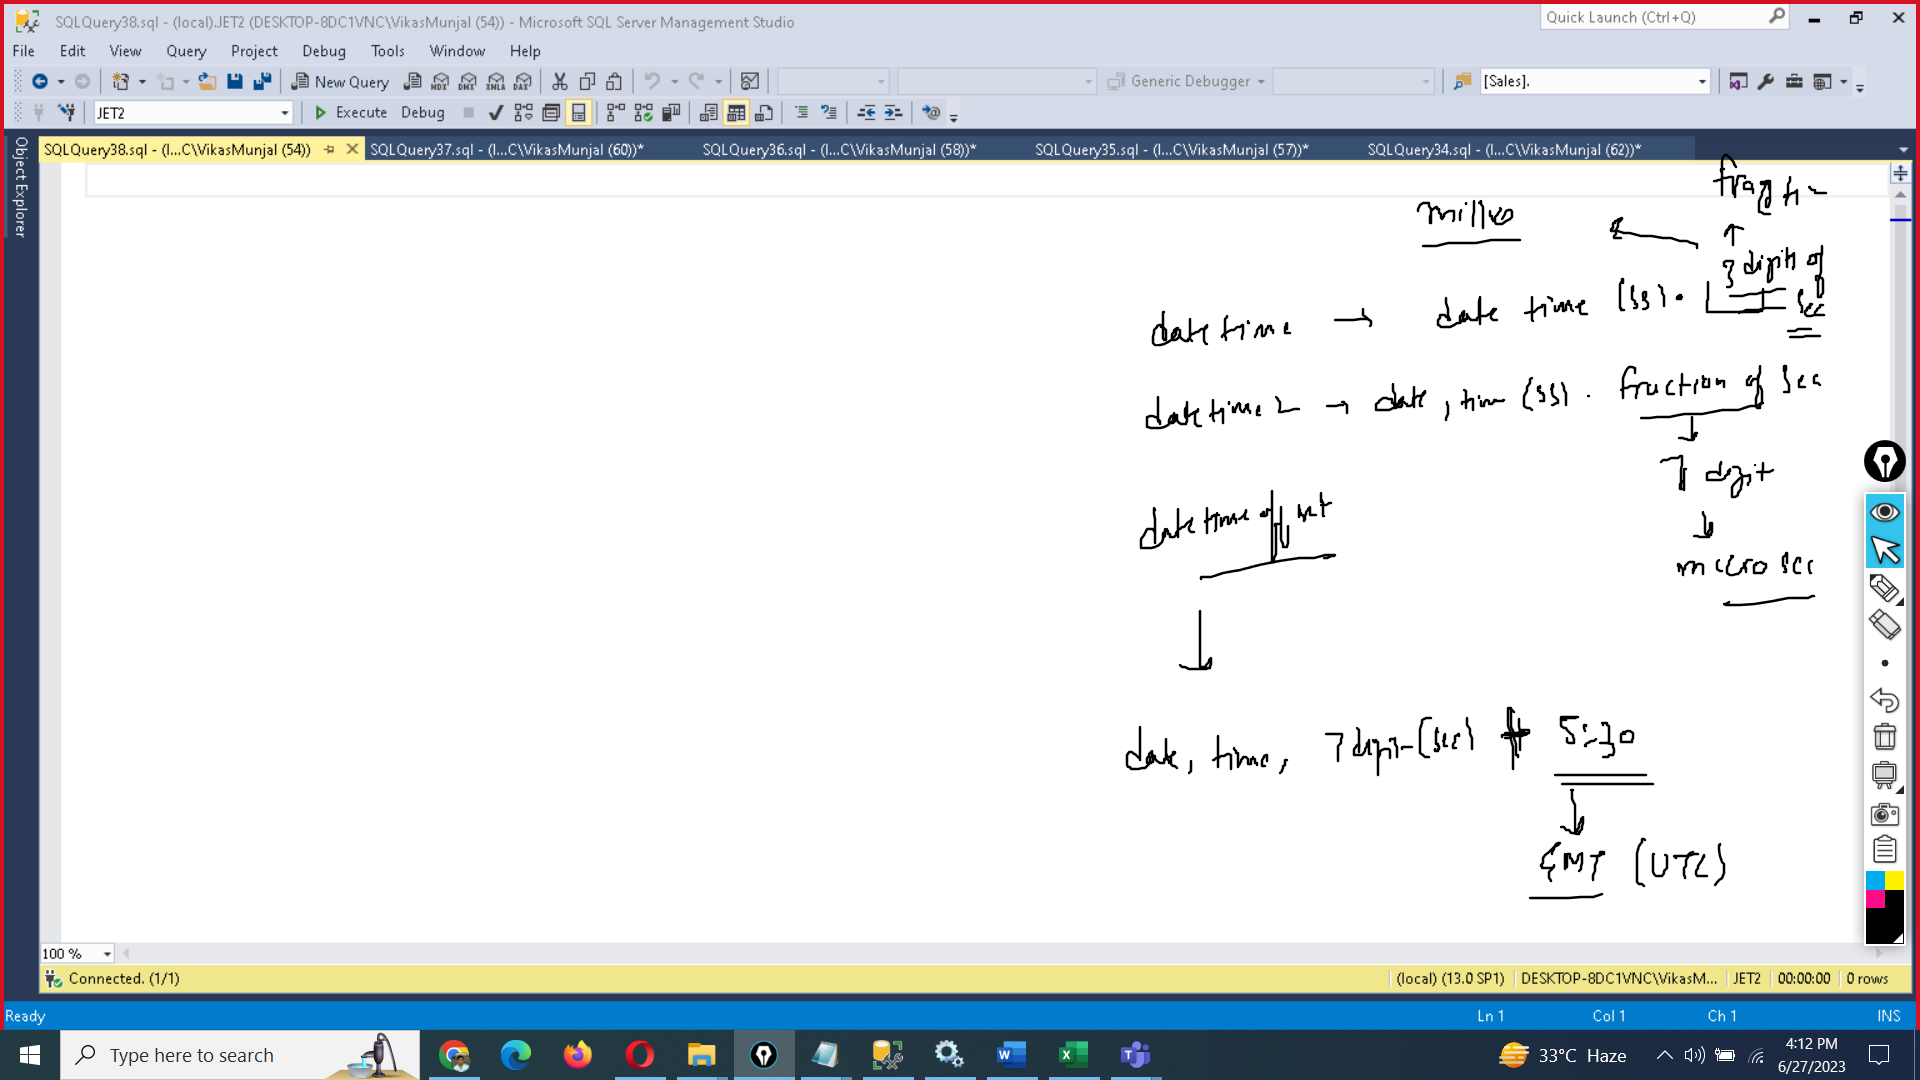 SQLQuery38.sql - (local).JET2 (DESKTOP-8DC1VNC\VikasMunjal (54)) - Microsoft SQL Server Management Studio
Quick Launch (Ctrl+Q)
File Edit View Query Project Debug Tools Window Help
New Query MDX DMX XMLA DAX Generic Debugger [Sales].
JET2 Execute Debug
Object Explorer
SQLQuery38.sql - (l...C\VikasMunjal (54)) SQLQuery37.sql - (l...C\VikasMunjal (60))* SQLQuery36.sql - (l...C\VikasMunjal (58))* SQLQuery35.sql - (l...C\VikasMunjal (57))* SQLQuery34.sql - (l...C\VikasMunjal (62))*
3 digits of
sec
datetime → date time (ss).
datetime2 → date, time (ss). fraction of sec
7 digit
micro sec
datetime offset
date, time, 7 digit (sec) + 5:30
GMT (UTC)
100 %
Connected. (1/1) (local) (13.0 SP1) DESKTOP-8DC1VNC\VikasM... JET2 00:00:00 0 rows
Ready Ln 1 Col 1 Ch 1 INS
Type here to search 33°C Haze 4:12 PM
6/27/2023